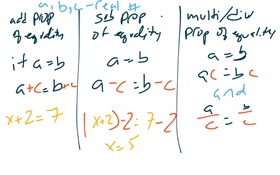 a, b, c - real #
add prop of equality
if a = b
a + c = b + c
x + 2 = 7
sub prop of equality
a = b
a - c = b - c
(x + 2) - 2 = 7 - 2
x = 5
multi/div prop of equality
a = b
ac = bc
and
a/c = b/c